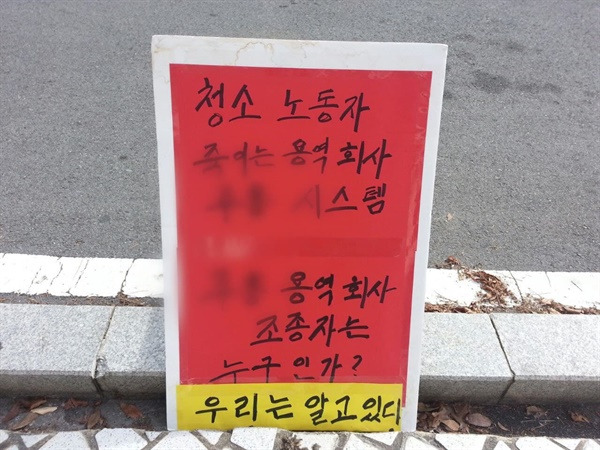 청소 노동자
죽이는 용역 회사
스템
용역 회사
조종자는
누구인가?
우리는 알고있다